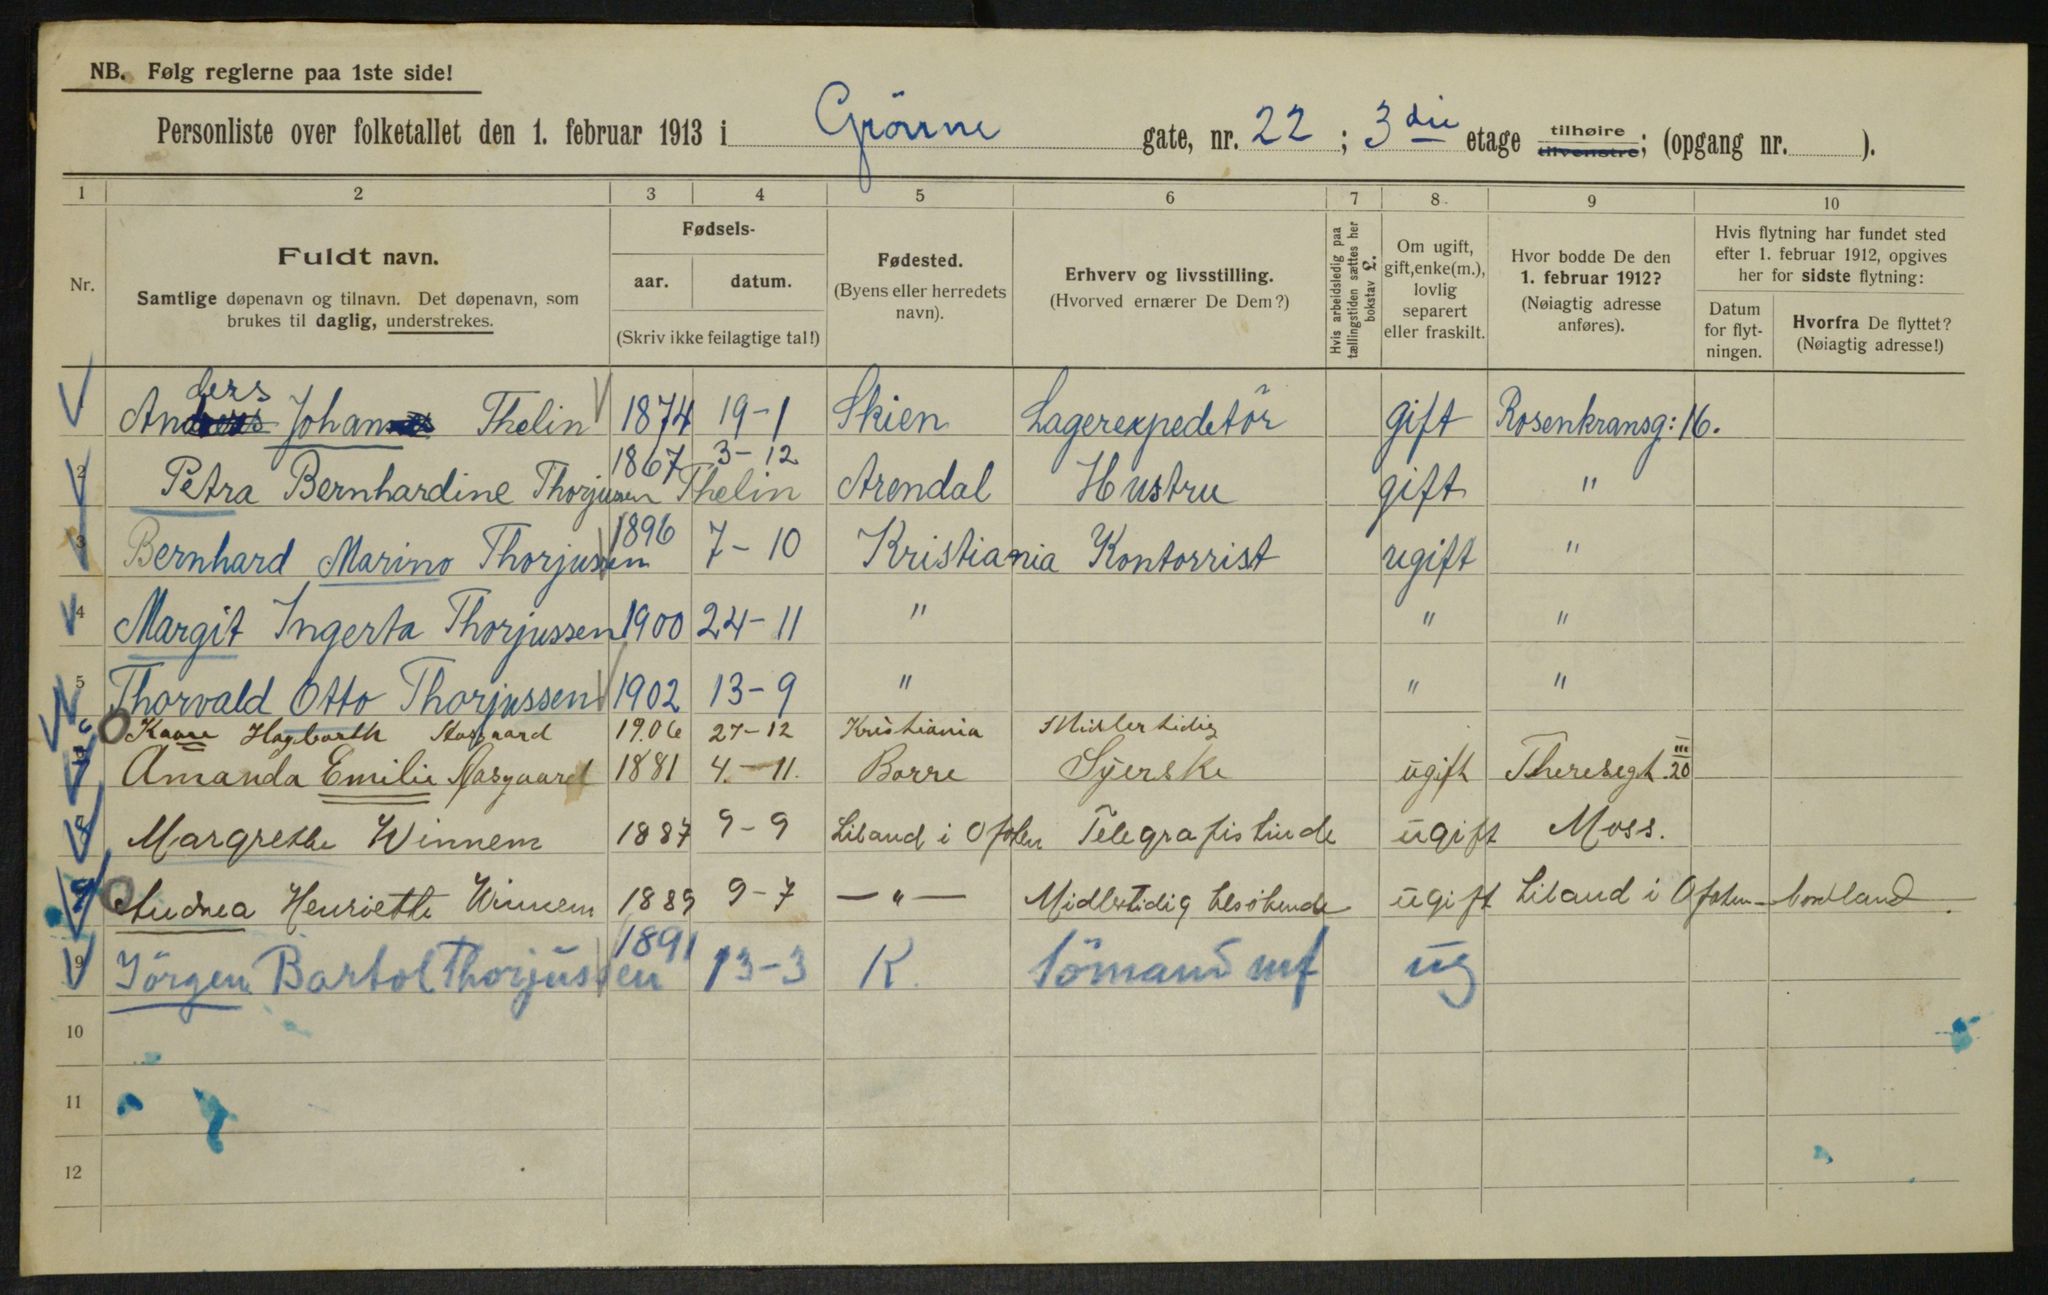 NB. Følg reglerne paa 1ste side!
Personliste over folketallet den 1. februar 1913 i Grönne gate, nr. 22 ; 3die etage tilhøire tilvenstre; (opgang nr. ).
1 2 3 4 5 6 7 8. 9 10
Nr.
Fuldt navn.
Samtlige døpenavn og tilnavn. Det døpenavn, som
brukes til daglig, understrekes.
Fødsels-
aar. datum.
(Skriv ikke feilagtige tal!)
Fødested.
(Byens eller herredets
navn).
Erhverv og livsstilling.
(Hvorved ernærer De Dem?)
Hvis arbeidsledig paa
tællingstiden sættes her
bokstav L.
Om ugift,
gift, enke(m.),
lovlig
separert
eller fraskilt.
Hvor bodde De den
1. februar 1912?
(Nøiagtig adresse
anføres).
Hvis flytning har fundet sted
efter 1. februar 1912, opgives
her for sidste flytning:
Datum
for flyt-
ningen.
Hvorfra De flyttet?
(Nøiagtig adresse!)
Anders Johan Thelin 1874 19-1 Skien Lagerexpeditör gift Rosenkransg: 16.
2 Petra Bernhardine Thorjussen Thelin 1867 3-12 Arendal Hustru gift "
3 Bernhard Marino Thorjussen 1896 7-10 Kristiania Kontorrist ugift "
4 Margit Ingerta Thorjussen 1900 24-11 " " "
5 Thorvald Otto Thorjussen 1902 13-9 " " "
6 Kaare Hagbarth Aasgaard 1906 27-12 Kristiania Midlertidig
7 Amanda Emilie Aasgaard 1881 4.-11. Borre Syerske ugift Theresegt. 20 III
8 Margrethe Winnem 1887 9-9 Liland i Ofoten Telegrafistinde ugift Moss.
9 Andrea Henriette Winnem 1889 9-7 —"— Midlertidig besökende ugift Liland i Ofoten - Nordland.
9 Jörgen Bartol Thorjussen 1891 13-3 K. Sömand mf ug
10
11
12